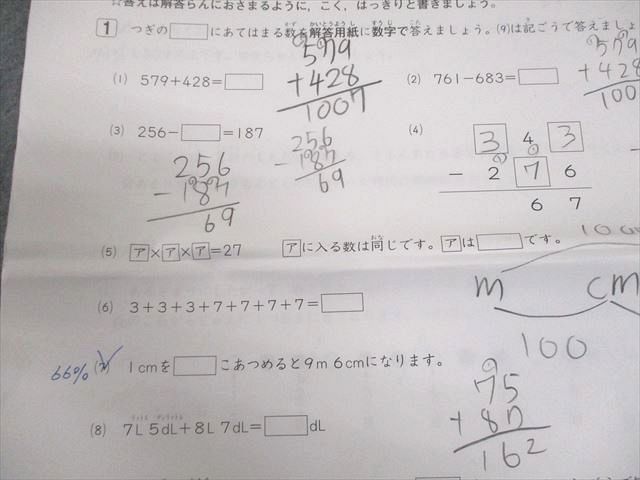 ☆答えは解答らんにおさまるように，こく，はっきりと書きましょう。
1 つぎの□にあてはまる数を解答用紙に数字で答えましょう。(9)は記ごうで答えましょ
(1) 579+428=□
579
+428
1007
(2) 761-683=□
579
+428
100
(3) 256-□=187
256
-187
69
256
-187
69
(4)
3 4 3
- 2 7 6
6 7
(5) ア×ア×ア=27 アに入る数は同じです。アは□です。
(6) 3+3+3+7+7+7+7=□
m cm
100
66% (7) 1cmを□こあつめると9m 6cmになります。
(8) 7L 5dL+8L 7dL=□dL
75
+87
162